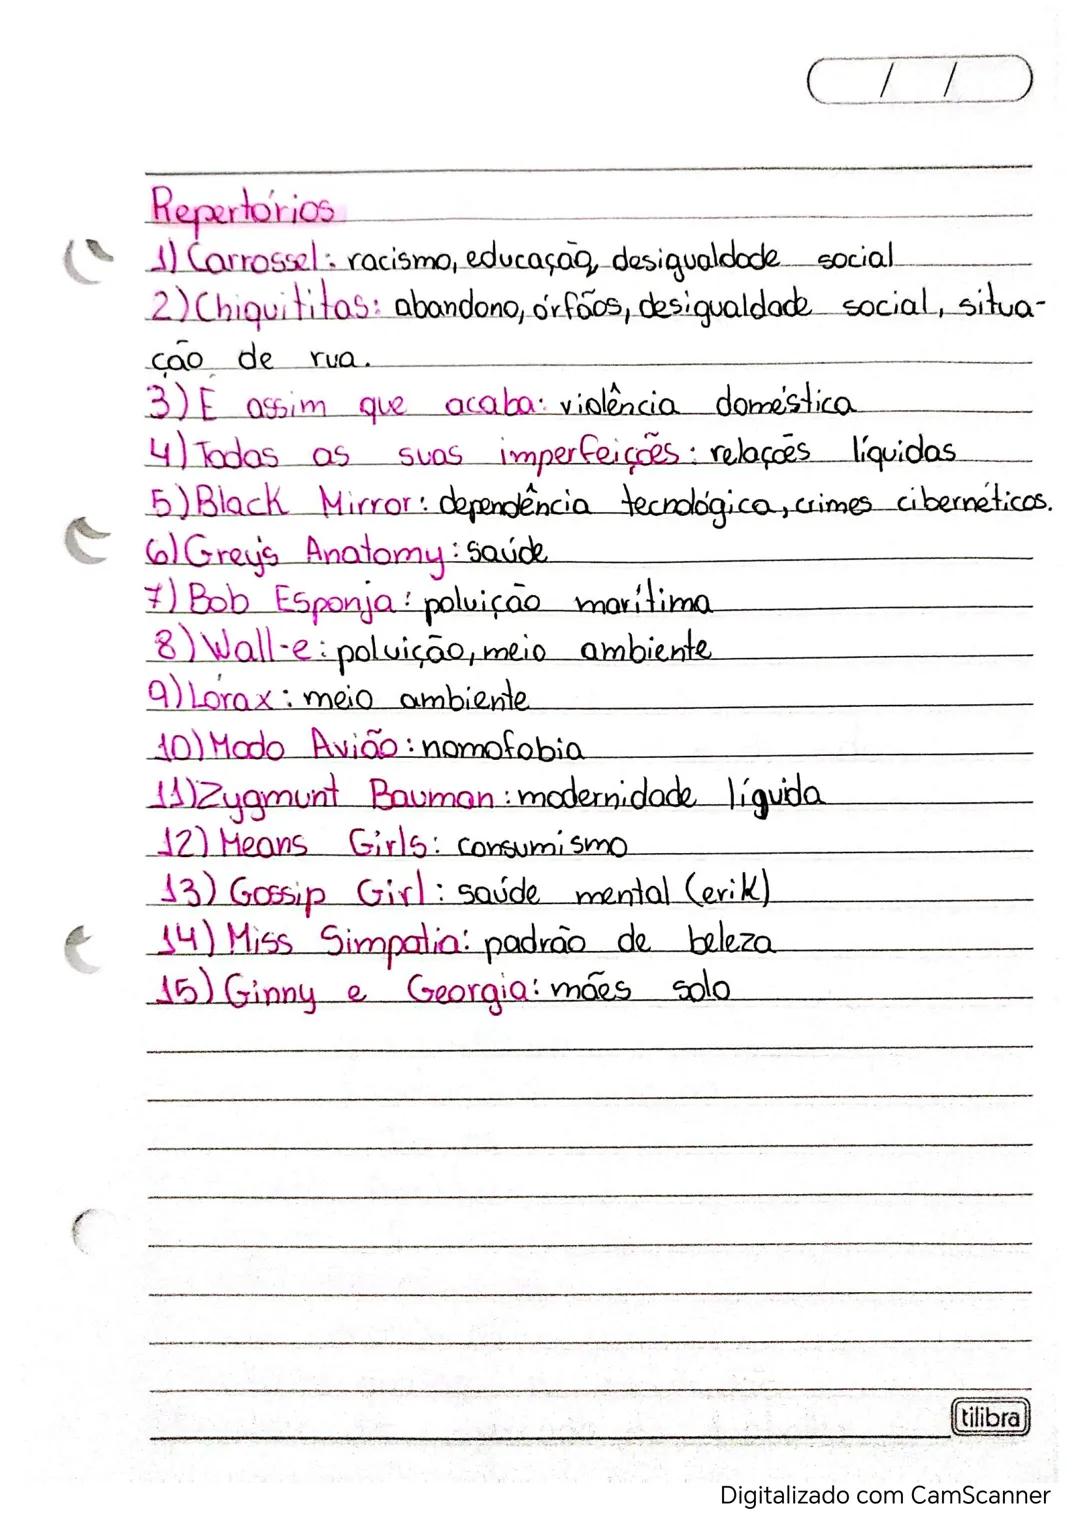 / /
Repertórios
1) Carrossel: racismo, educação, desigualdade social
2) Chiquititas: abandono, órfãos, desigualdade social, situa-
ção de rua.
3) É assim que acaba: violência doméstica
4) Todas as suas imperfeições: relações líquidas
5) Black Mirror: dependência tecnológica, crimes cibernéticos.
6) Grey's Anatomy: saúde
7) Bob Esponja: poluição marítima
8) Wall-e: poluição, meio ambiente
9) Lórax: meio ambiente
10) Modo Avião: nomofobia
11) Zygmunt Bauman: modernidade líquida
12) Means Girls: consumismo
13) Gossip Girl: saúde mental (erik)
14) Miss Simpatia: padrão de beleza
15) Ginny e Georgia: mães solo
tilibra
Digitalizado com CamScanner